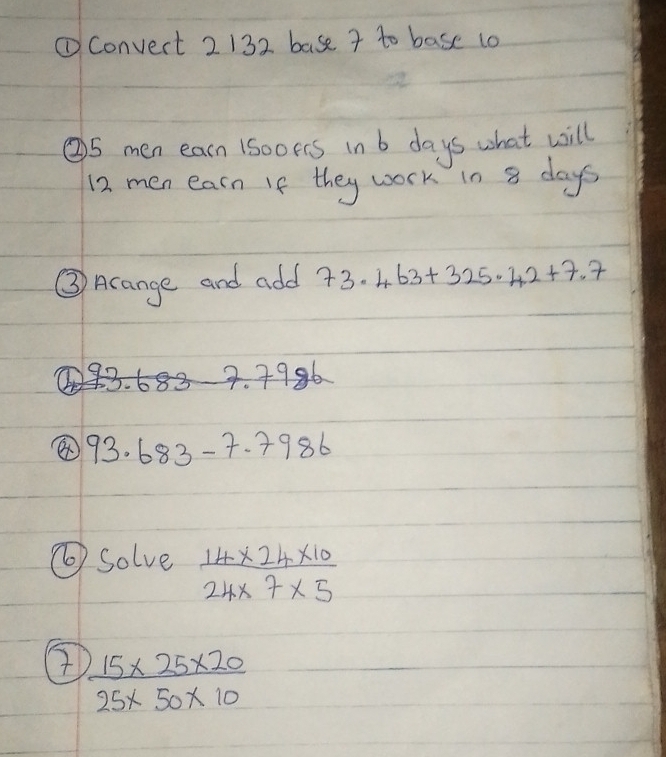 ① Convert 2132 base 7 to base 10
② 5 men earn 1500frs in 6 days what will
12 men earn if they work in 8 days
③ Arange and add 73.463+325.42+7.7
④ 93.683-7.7986
④ 93.683-7.7986
⑥ Solve 14×24×10
24×7×5
⑦ 15×25×20
25×50×10